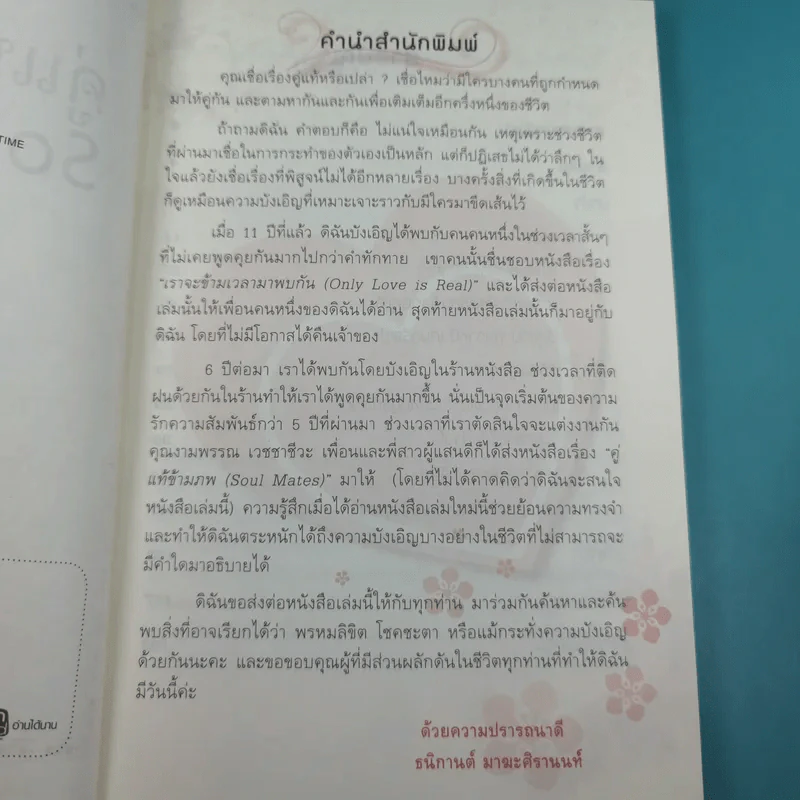 คำนำสำนักพิมพ์
คุณเชื่อเรื่องคู่แท้หรือเปล่า ? เชื่อไหมว่ามีใครบางคนที่ถูกกำหนด
มาให้คู่กัน และตามหากันและกันเพื่อเติมเต็มอีกครึ่งหนึ่งของชีวิต
ถ้าถามดิฉัน คำตอบก็คือ ไม่แน่ใจเหมือนกัน เหตุเพราะช่วงชีวิต
ที่ผ่านมาเชื่อในการกระทำของตัวเองเป็นหลัก แต่ก็ปฏิเสธไม่ได้ว่าลึกๆ ใน
ใจแล้วยังเชื่อเรื่องที่พิสูจน์ไม่ได้อีกหลายเรื่อง บางครั้งสิ่งที่เกิดขึ้นในชีวิต
ก็ดูเหมือนความบังเอิญที่เหมาะเจาะราวกับมีใครมาขีดเส้นไว้
เมื่อ 11 ปีที่แล้ว ดิฉันบังเอิญได้พบกับคนคนหนึ่งในช่วงเวลาสั้นๆ
ที่ไม่เคยพูดคุยกันมากไปกว่าคำทักทาย เขาคนนั้นชื่นชอบหนังสือเรื่อง
"เราจะข้ามเวลามาพบกัน (Only Love is Real)" และได้ส่งต่อหนังสือ
เล่มนั้นให้เพื่อนคนหนึ่งของดิฉันได้อ่าน สุดท้ายหนังสือเล่มนั้นก็มาอยู่กับ
ดิฉัน โดยที่ไม่มีโอกาสได้คืนเจ้าของ
6 ปีต่อมา เราได้พบกันโดยบังเอิญในร้านหนังสือ ช่วงเวลาที่ติด
ฝนด้วยกันในร้านทำให้เราได้พูดคุยกันมากขึ้น นั่นเป็นจุดเริ่มต้นของความ
รักความสัมพันธ์กว่า 5 ปีที่ผ่านมา ช่วงเวลาที่เราตัดสินใจจะแต่งงานกัน
คุณงามพรรณ เวชชาชีวะ เพื่อนและพี่สาวผู้แสนดีก็ได้ส่งหนังสือเรื่อง "คู่
แท้ข้ามภพ (Soul Mates)" มาให้ (โดยที่ไม่ได้คาดคิดว่าดิฉันจะสนใจ
หนังสือเล่มนี้) ความรู้สึกเมื่อได้อ่านหนังสือเล่มใหม่นี้ช่วยย้อนความทรงจำ
และทำให้ดิฉันตระหนักได้ถึงความบังเอิญบางอย่างในชีวิตที่ไม่สามารถจะ
มีคำใดมาอธิบายได้
ดิฉันขอส่งต่อหนังสือเล่มนี้ให้กับทุกท่าน มาร่วมกันค้นหาและค้น
พบสิ่งที่อาจเรียกได้ว่า พรหมลิขิต โชคชะตา หรือแม้กระทั่งความบังเอิญ
ด้วยกันนะคะ และขอขอบคุณผู้ที่มีส่วนผลักดันในชีวิตทุกท่านที่ทำให้ดิฉัน
มีวันนี้ค่ะ
ด้วยความปรารถนาดี
ธนิกานต์ มาฆะศิรานนท์
TIME
อ่านได้นาน